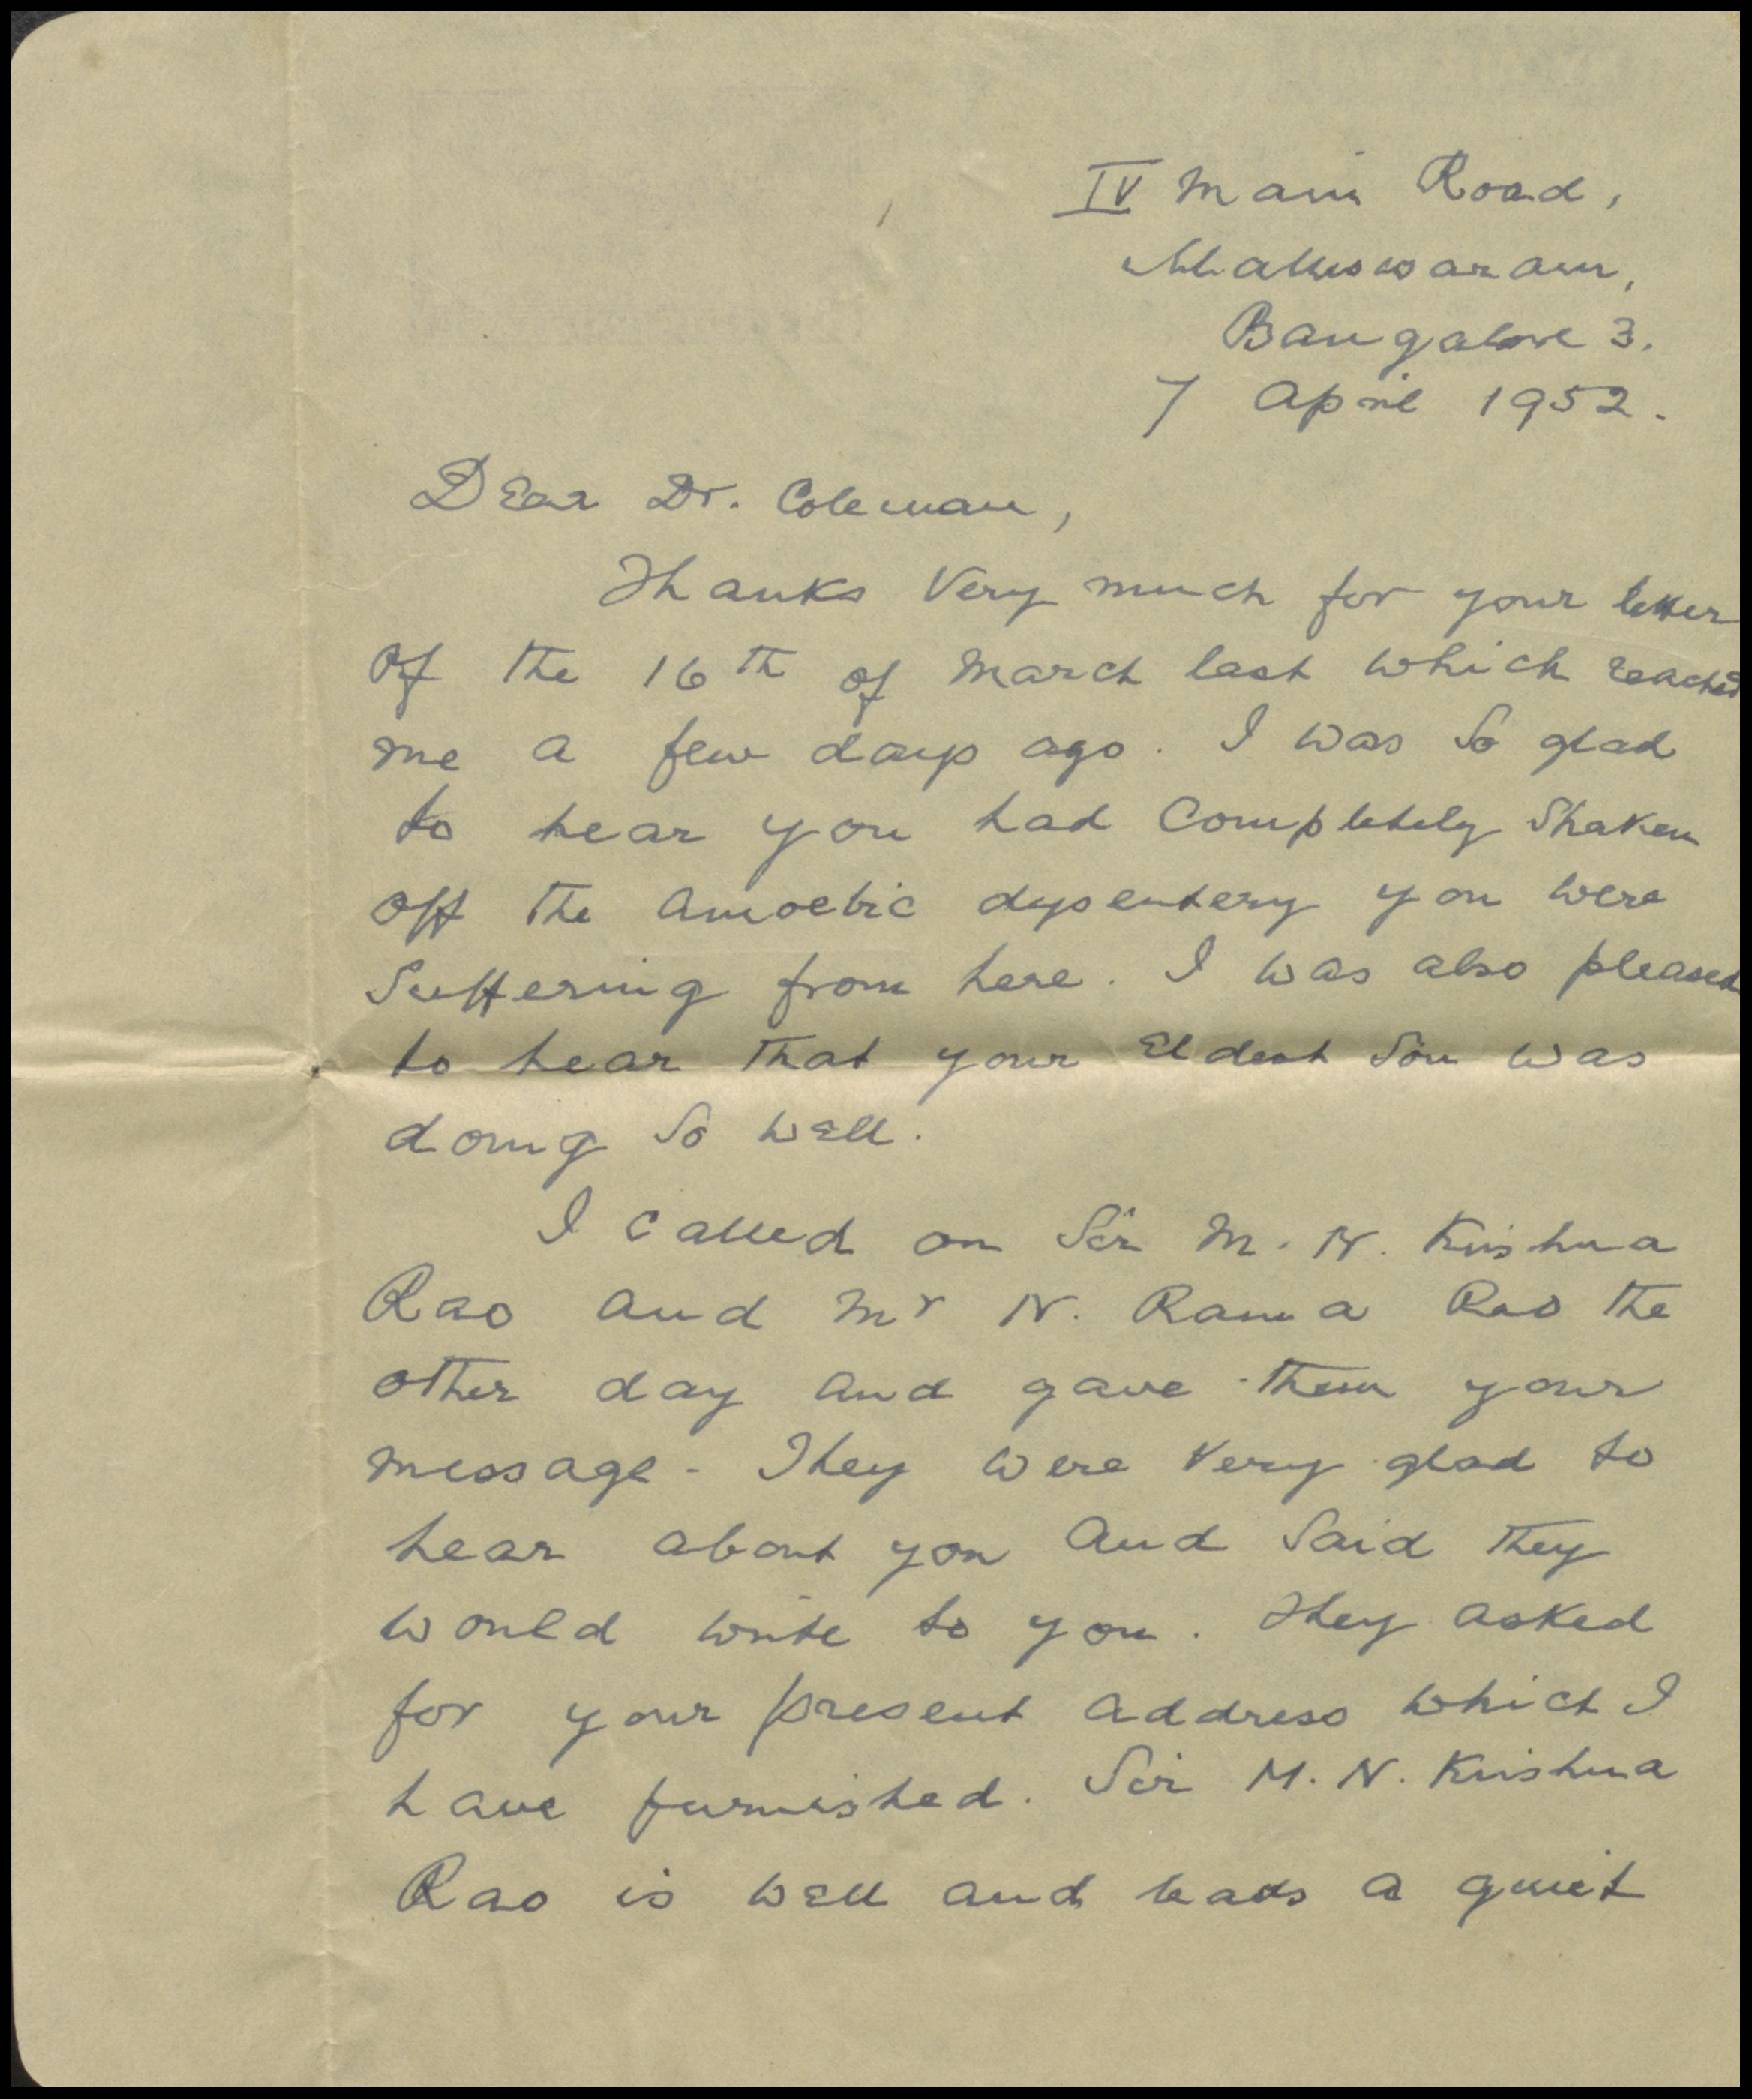 IV Main Road,
Malleswaram,
Bangalore 3.
7 April 1952.
Dear Dr. Coleman,
Thanks very much for your letter
of the 16th of March last which reached
me a few days ago. I was so glad
to hear you had completely shaken
off the amoebic dysentery you were
suffering from here. I was also pleased
to hear that your eldest son was
doing so well.
I called on Sir M. N. Krishna
Rao and Mr N. Rama Rao the
other day and gave them your
message. They were very glad to
hear about you and said they
would write to you. They asked
for your present address which I
have furnished. Sir M. N. Krishna
Rao is well and leads a quiet